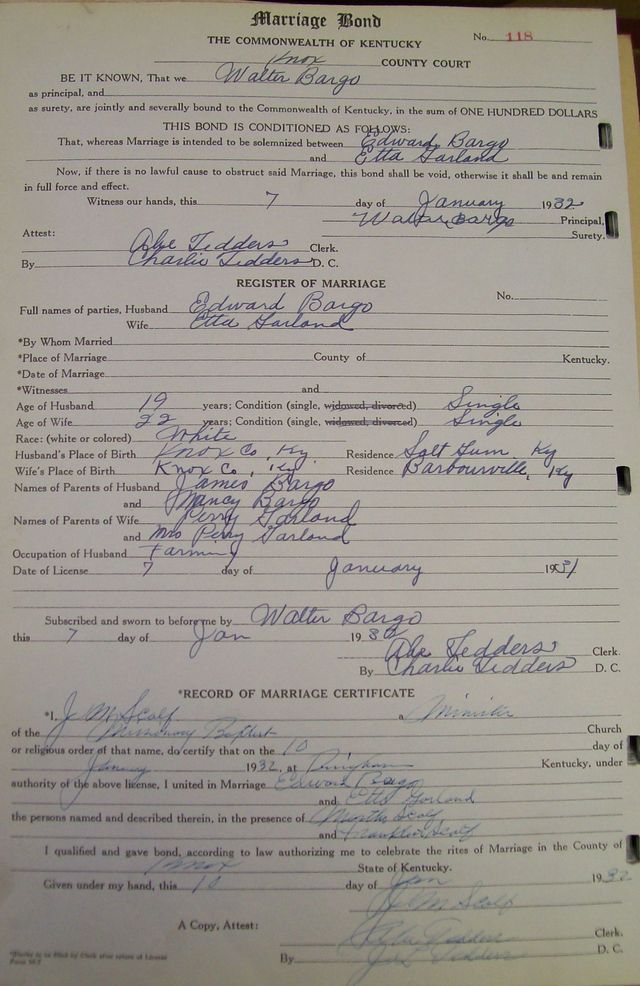 Marriage Bond
THE COMMONWEALTH OF KENTUCKY No. 118
Knox COUNTY COURT
BE IT KNOWN, That we Walter Bargo
as principal, and
as surety, are jointly and severally bound to the Commonwealth of Kentucky, in the sum of ONE HUNDRED DOLLARS
THIS BOND IS CONDITIONED AS FOLLOWS:
That, whereas Marriage is intended to be solemnized between Edward Bargo
and Etta Garland
Now, if there is no lawful cause to obstruct said Marriage, this bond shall be void, otherwise it shall be and remain
in full force and effect.
Witness our hands, this 7 day of January 1932
Walter Bargo Principal,
Surety.
Attest:
Abe Tedders Clerk.
By Charlie Tedders D. C.
REGISTER OF MARRIAGE
Full names of parties, Husband Edward Bargo No.
Wife Etta Garland
*By Whom Married
*Place of Marriage County of Kentucky.
*Date of Marriage
*Witnesses and
Age of Husband 19 years; Condition (single, widowed, divorced) Single
Age of Wife 22 years; Condition (single, widowed, divorced) Single
Race: (white or colored) White
Husband's Place of Birth Knox Co, Ky. Residence Salt Gum, Ky
Wife's Place of Birth Knox Co, Ky. Residence Barbourville, Ky
Names of Parents of Husband James Bargo
and Nancy Bargo
Names of Parents of Wife Perry Garland
and Mrs Perry Garland
Occupation of Husband Farming
Date of License 7 day of January 1931
Subscribed and sworn to before me by Walter Bargo
this 7 day of Jan 193
Abe Tedders Clerk.
By Charlie Tedders D. C.
*RECORD OF MARRIAGE CERTIFICATE
*I, J M Scalf a Minister
of the Missionary Baptist Church
or religious order of that name, do certify that on the 10 day of
January 1932, at Kentucky, under
authority of the above license, I united in Marriage Edward Bargo
and Etta Garland
the persons named and described therein, in the presence of Scalf
and Scalf
I qualified and gave bond, according to law authorizing me to celebrate the rites of Marriage in the County of
Knox State of Kentucky.
Given under my hand, this 10 day of Jan 1932
J M Scalf
A Copy, Attest: Abe Tedders Clerk.
By Tedders D. C.
Form